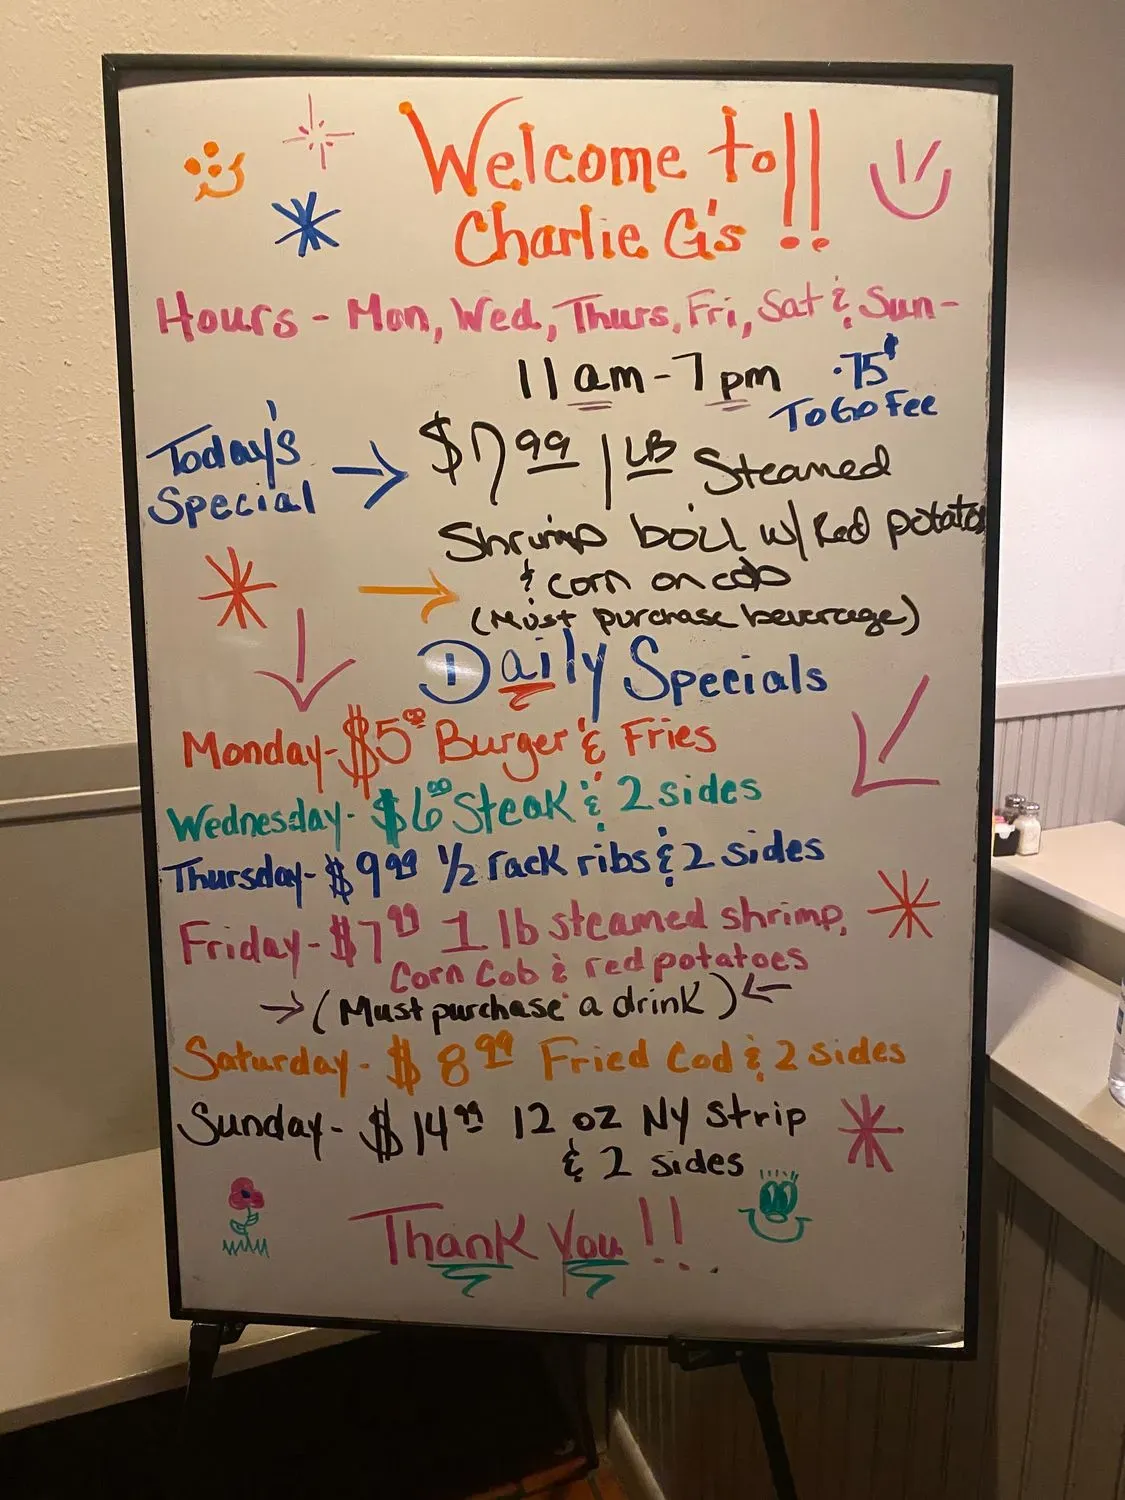 Welcome to !!
Charlie G's
Hours - Mon, Wed, Thurs, Fri, Sat & Sun -
11 am - 7 pm
.75¢
To Go Fee
Today's
Special
$7.99 1 LB Steamed
Shrimp boil w/ Red potato
& corn on cob
(Must purchase beverage)
Daily Specials
Monday - $5.00 Burger & Fries
Wednesday - $6.00 Steak & 2 sides
Thursday - $9.99 1/2 rack ribs & 2 sides
Friday - $7.99 1 lb steamed shrimp,
Corn Cob & red potatoes
(Must purchase a drink)
Saturday - $8.99 Fried Cod & 2 sides
Sunday - $14.99 12 oz NY Strip
& 2 sides
Thank You!!